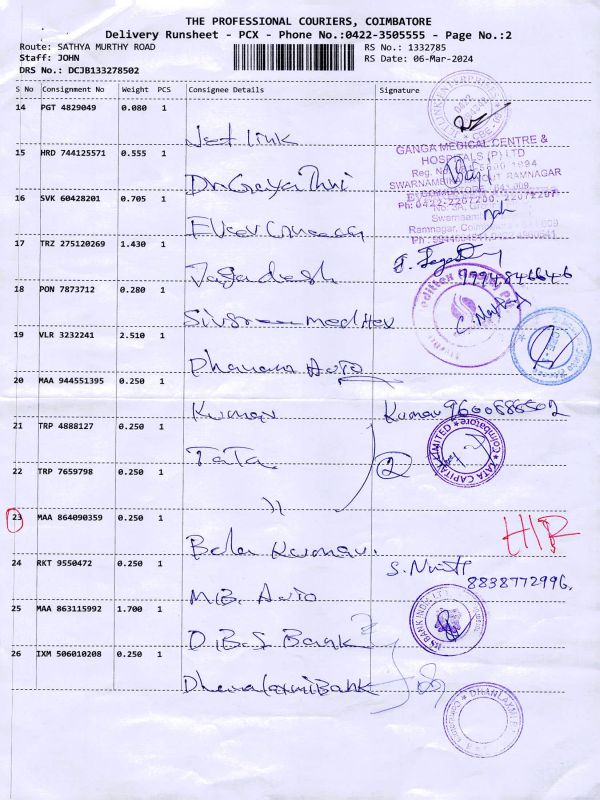 THE PROFESSIONAL COURIERS, COIMBATORE
Delivery Runsheet - PCX - Phone No.:0422-3505555 - Page No.:2
Route: SATHYA MURTHY ROAD
RS No.: 1332785
Staff: JOHN
RS Date: 06-Mar-2024
DRS No.: DCJB133278502
S No Consignment No Weight PCS Consignee Details Signature
14 PGT 4829049 0.080 1
Jet link
GANGA MEDICAL CENTRE &
HOSPITALS (P) LTD
15 HRD 744125571 0.555 1
Dr Gayathri
16 SVK 60428201 0.705 1
17 TRZ 275120269 1.430 1
Jagadesh
9994846646
18 PON 7873712 0.280 1
19 VLR 3232241 2.510 1
Dhanam Auto
20 MAA 944551395 0.250 1
Kumar
Kumar 9600886502
21 TRP 4888127 0.250 1
TaTa
TATA CAPITAL LIMITED
Coimbatore
2
22 TRP 7659798 0.250 1
"
23 MAA 864090359 0.250 1
Bala Kumar.
24 RKT 9550472 0.250 1
M.B. Auto
8838772996.
25 MAA 863115992 1.700 1
D.B.S Bank
26 IXM 506010208 0.250 1
Dhanalaxmi Bank